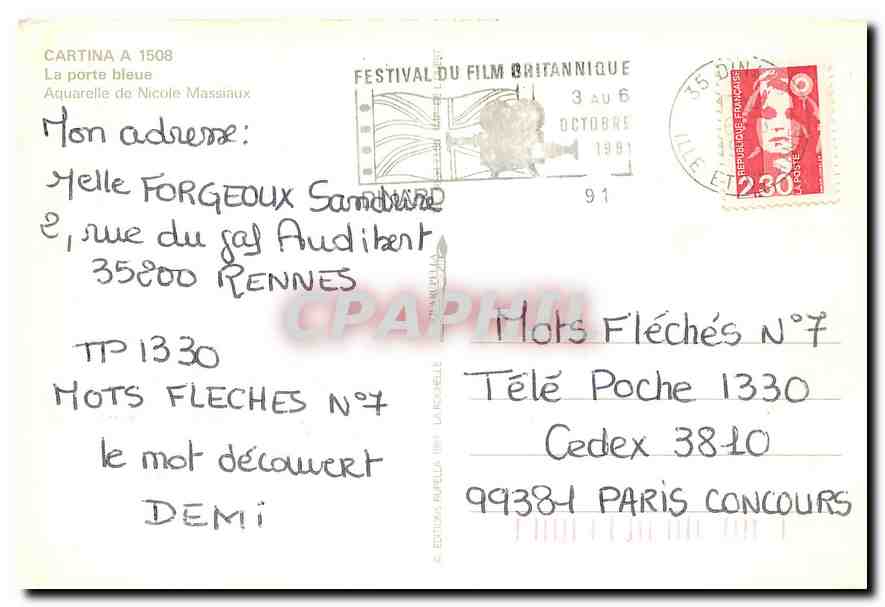 CARTINA A 1508
La porte bleue
Aquarelle de Nicole Massiaux
Mon adresse:
Melle FORGEOUX Sandrine
2, rue du gal Audibert
35200 RENNES
TP 1330
MOTS FLECHES N°7
le mot découvert
DEMI
© EDITIONS RUPELLA 1991 LA ROCHELLE
FESTIVAL DU FILM BRITANNIQUE
3 AU 6
OCTOBRE
1991
DINARD
91
35 DINARD
ILLE ET
REPUBLIQUE FRANÇAISE
LA POSTE
2,30
CPAPHIL
Mots Fléchés N°7
Télé Poche 1330
Cedex 3810
99381 PARIS CONCOURS